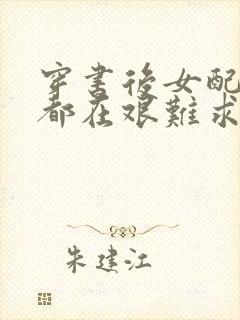 穿書後女配
都在艱難求
朱建江